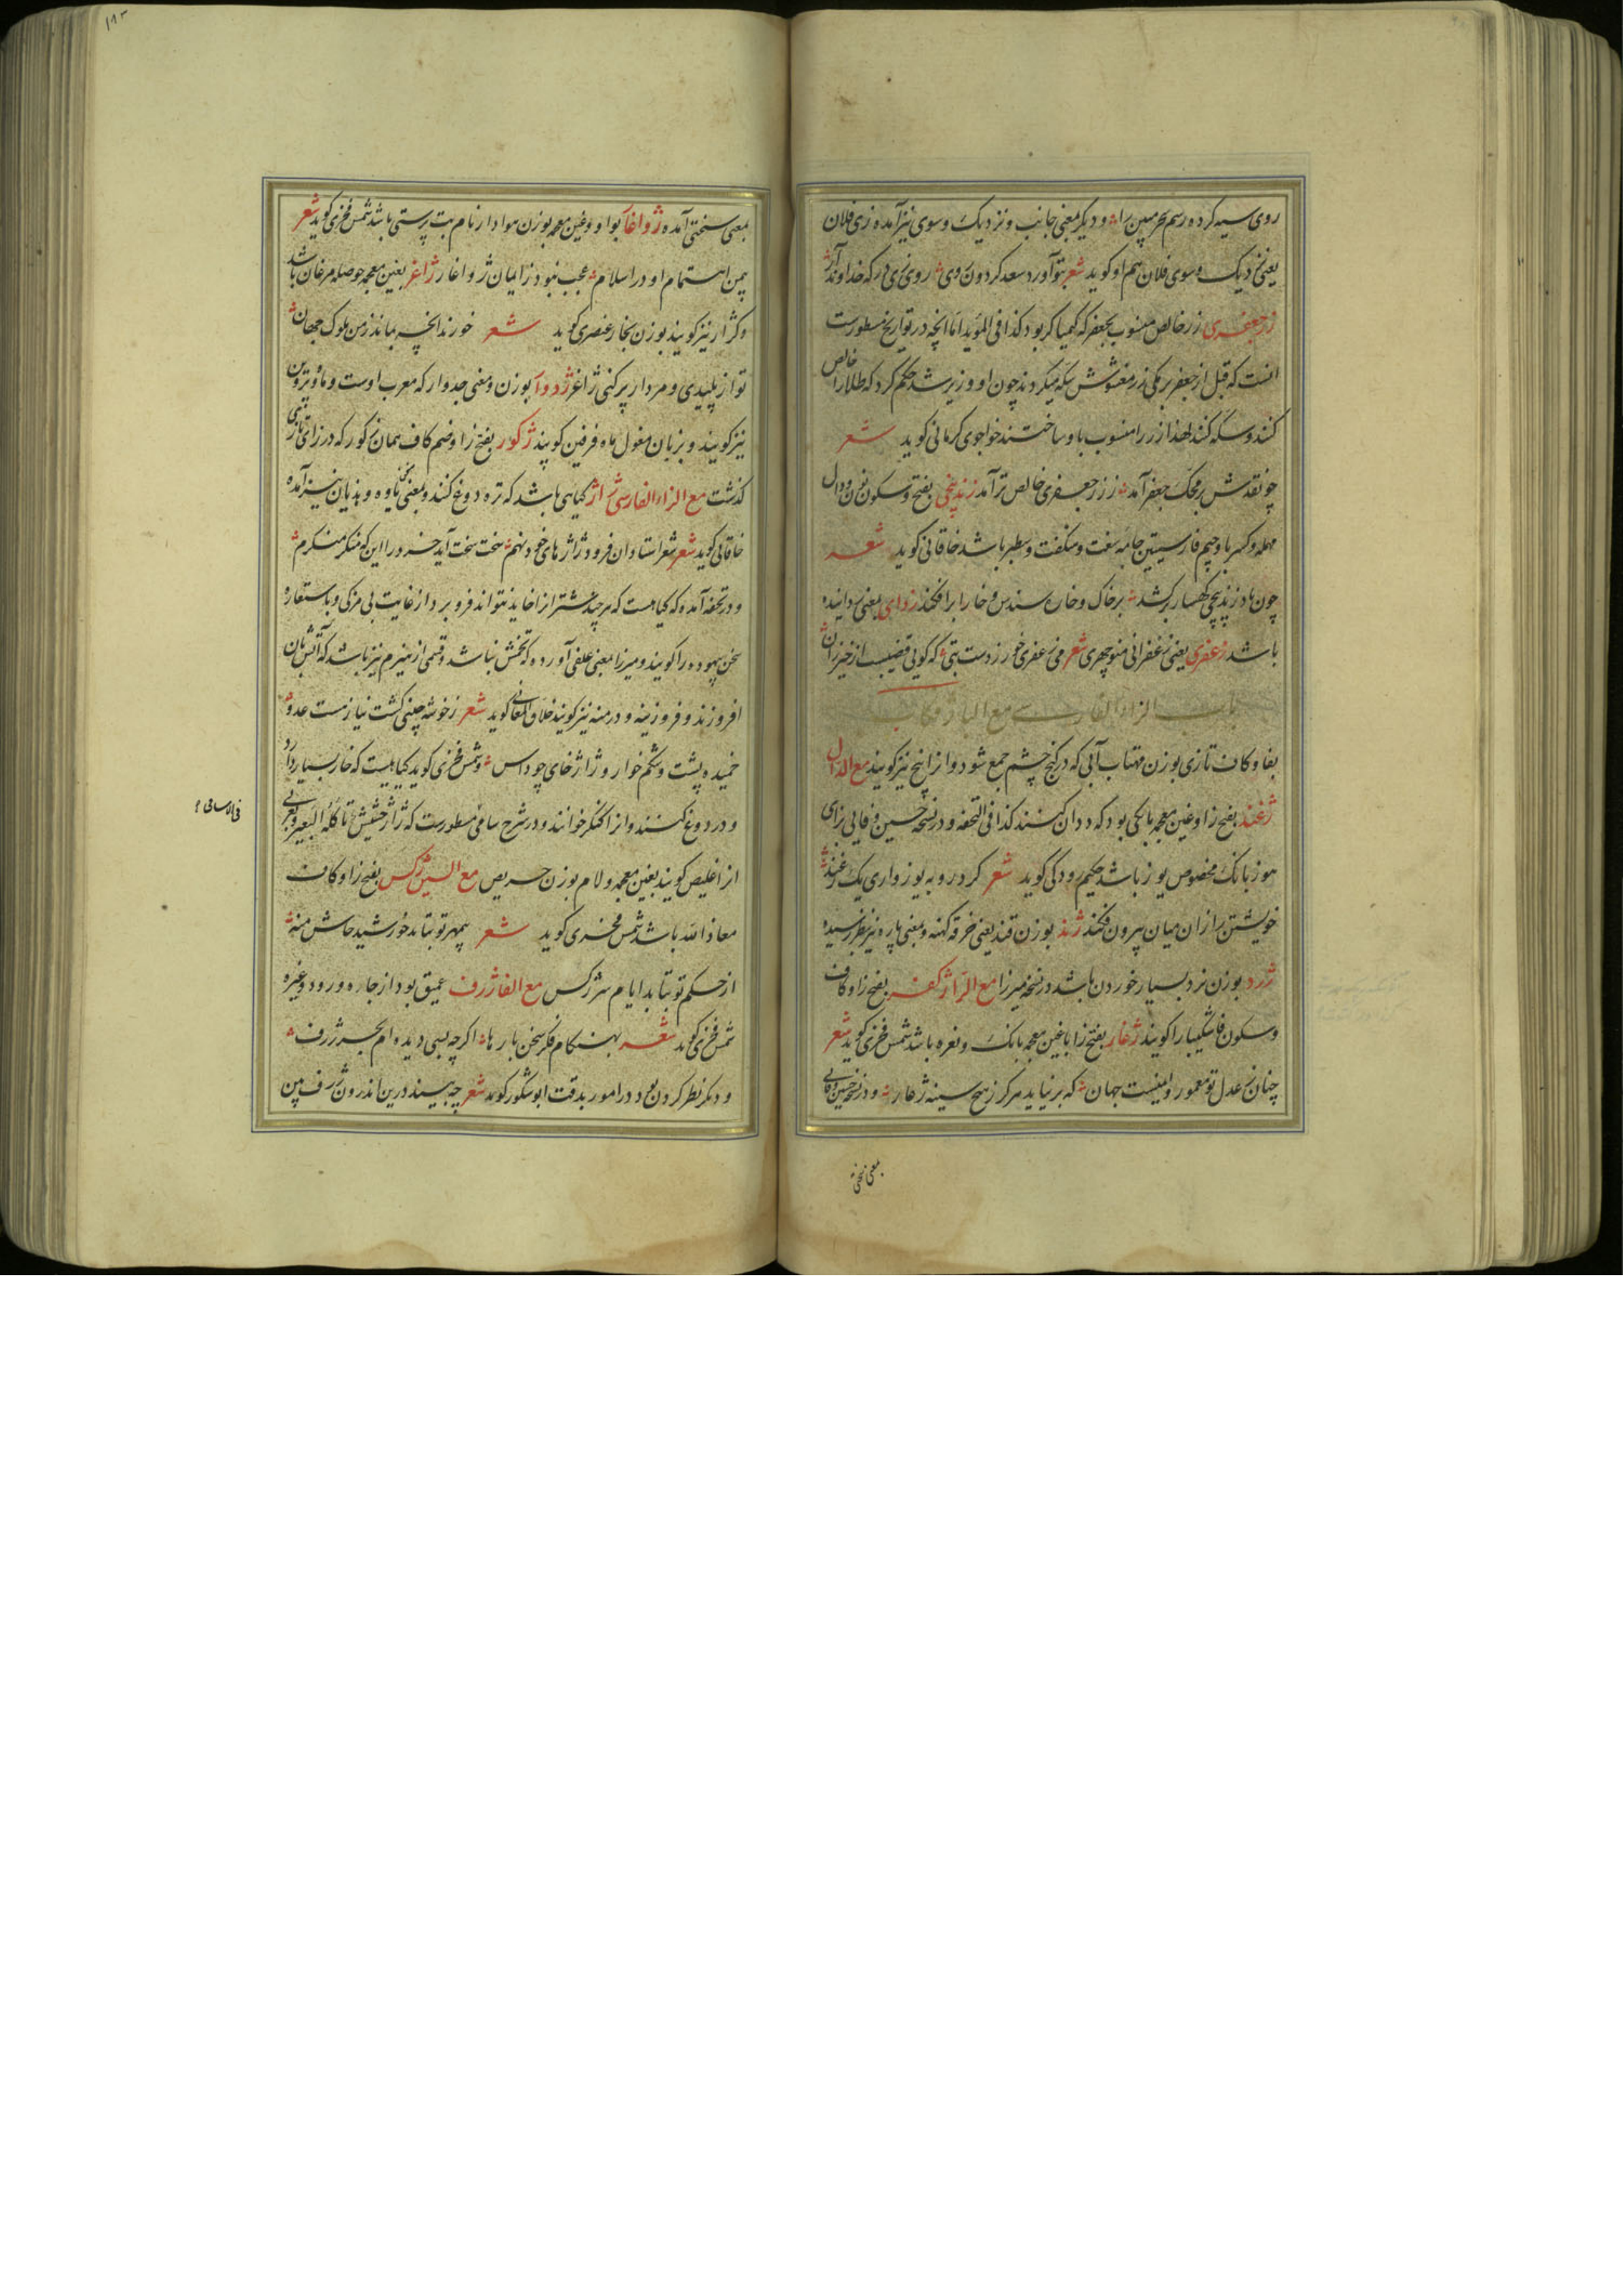 روی سیه کرده رسم بحر مبین را؞ و دیگر بمعنی جانب و نزدیک و سوی نیز آمده زی فلان
یعنی نزدیک و سوی فلان هم او کوید شعر بتو آورد سعد کردون روی؞ روی زی درکه خداوند آر؞
زر جعفری زر خالص منسوب بجعفر که کیمیا کر بود کذا فی المؤید اما انچه در تواریخ مسطورست
انست که قبل از جعفر برمکی زر مغشوش سکه میکردند چون او وزیر شد حکم کرد که طلا را خالص
کنند و سکه کنند لهذا زر را منسوب باو ساختند خواجوی کرمانی کوید شعر
چو نقدش بر محک جعفر آمد؞ ز زر جعفری خالص تر آمد زندپیچی بفتح و سکون نون و دال
مهمله و کسر با و جیم فارسیتین جامه سفت و سطبر باشد خاقانی کوید شعر
چون باد زندپیچی کهسار برکشد؞ بر خاک و خاره سندس و خارا برافکند زدای بمعنی زداینده
باشد زعفری یعنی زعفرانی منوچهری شعر می زعفری خور ز دست بتی؞ که کویی قضیبست از خیزران؞
باب الزاء الفارسی مع الباء ژفکاب
بفا و کاف تازی بوزن مهتاب آبی که در کنج چشم جمع شود و انرا پیخ نیز کویند مع الدال
ژغند بفتح زا و غین معجمه بانکی بود که ددان کنند کذا فی التحفه و در نسخه حسین وفایی بزای
هوز بانک مخصوص یوز باشد حکیم رودکی کوید شعر کرد روبه یوزواری یک زغند؞
خویشتن را زان میان بیرون فکند ژند بوزن قند یعنی خرقه کهنه و بمعنی پاره نیز بنظر رسیده
ژرد بوزن نرد بسیار خوردن باشد در نسخه میرزا مع الرا ژکفر بفتح زا و کاف
و سکون فا شکیبا را کویند ژغار بفتح زا با غین معجمه بانک و نعره باشد شمس فخری کوید شعر
چنان ز عدل تو معمور و ایمنست جهان؞ که برنیاید هرکز ز هیچ سینه ژغار؞ و در نسخه حسین وفایی
بمعنی سختی
بمعنی سختی آمده ژواغار بواو و غین معجمه بوزن هوادار نام بت پرستی باشد شمس فخری کوید شعر
بیمن اهتمام او در اسلام؞ عجب نبود ز ایمان ژواغار ژاغر بغین معجمه حوصله مرغان باشد
و کژار نیز کویند بوزن بخار عنصری کوید شعر خورند انچه بماند ز من ملوک جهان؞
تو از پلیدی و مردار پر کنی ژاغر ژدوار بوزن و معنی جدوار که معرب اوست و ماه پروین
نیز کویند و بزبان مغول ماه فرفین کویند ژکور بفتح زا و ضم کاف همان زکور که در زای تازی
کذشت مع الزاء الفارسی ژاژ کیاهی باشد که تره دوغ کنند و بمعنی سخنان یاوه و هذیان نیز آمده
خاقانی کوید شعر شعر استادان فرود ژاژهای خود نهم؞ سخت سخت آید خرد را این که منکر منکرم؞
و در تحفه آمده که کیاهست که هر چند شتر انرا خاید نتواند فرو برد از غایت بی مزکی و باستعاره
سخن بیهوده را کویند و میرزا بمعنی علفی آورده که تخمش نباشد و قسمی از هیزم نیز باشد که آتش بان
افروزند و فروزینه و درمنه نیز کویند خلاق المعانی کوید شعر ز خوشه چینی کشت نیاز مست عدو؞
خمیده پشت و شکم خوار و ژاژ خای چو داس؞ و شمس فخری کوید کیاهیست که خار بسیار دارد
و در دوغ کنند و انرا کنکر خوانند و در شرح سامی مسطورست که ژاژ حشیش تاکله البعیر و بعربی
انرا غلیص کویند بغین معجمه و لام بوزن حریص مع السین ژکس بفتح زا و کاف
معاذ الله باشد شمس فخری کوید شعر بمهر تو بتابد خورشید حاش منه؞
از حکم تو بتابد ایام سر ژکس مع الفا ژرف عمیق بود از جاه و رود و غیره
شمس فخری کوید شعر بهنکام فکر سخن بارها؞ اکر چه بسی دیده ام بحر ژرف؞
و دیکر نظر کردن بود در امور بدقت ابو شکور کوید شعر چه بیند درین اندرون ژرف بین
فی الاسامی